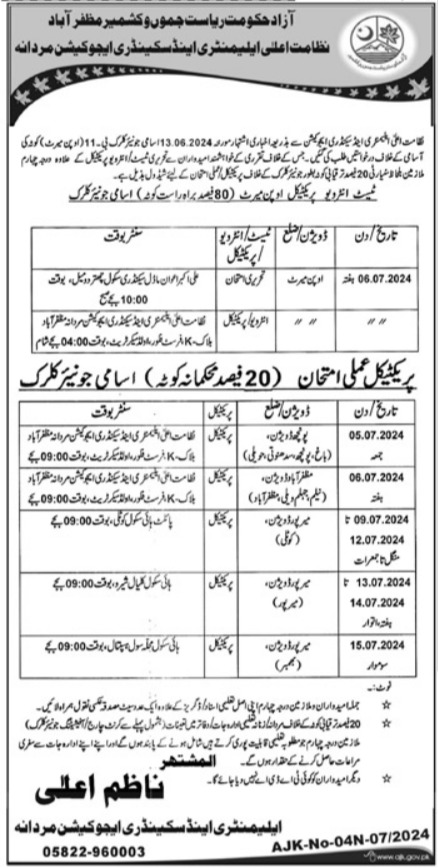 آزاد حکومت ریاست جموں و کشمیر مظفر آباد
نظامت اعلیٰ ایلیمنٹری اینڈ سکینڈری ایجوکیشن مردانہ
نظامت اعلیٰ ایلیمنٹری اینڈ سکینڈری ایجوکیشن سے بذریعہ اخباری اشتہار مورخہ 13.06.2024 اسامی جونیئر کلرک بی۔11 (اوپن میرٹ) کوٹہ کی
آسامی کے خلاف درخواستیں طلب کی گئیں۔ جس کے خلاف تقرری کے خواہشمند امیدواران سے تحریری ٹیسٹ/انٹرویو پریکٹیکل کے علاوہ درجہ چہارم
ملازمین بلحاظ سنیارٹی 20 فیصد ترقیابی کوٹہ بطور جونیئر کلرک کے خلاف پریکٹیکل/عملی امتحان کے لیئے شیڈول بذیل ہے۔
ٹیسٹ انٹرویو پریکٹیکل اوپن میرٹ (80 فیصد براہ راست کوٹہ) اسامی جونیئر کلرک
تاریخ/دن ڈویژن/ضلع ٹیسٹ/انٹرویو/پریکٹیکل سنٹر بوقت
06.07.2024 ہفتہ اوپن میرٹ تحریری امتحان علی اکبر اعوان ماڈل سیکنڈری سکول چھتر دومیل، بوقت
10:00 بجے صبح
// // // // انٹرویو/پریکٹیکل نظامت اعلیٰ ایلیمنٹری اینڈ سیکنڈری ایجوکیشن مردانہ مظفر آباد
بلاک،K، فرسٹ فلور، اولڈ سیکرٹریٹ، بوقت 04:00 بجے شام
پریکٹیکل عملی امتحان (20 فیصد محکمانہ کوٹہ) اسامی جونیئر کلرک
تاریخ/دن ڈویژن/ضلع پریکٹیکل سنٹر بوقت
05.07.2024 پونچھ ڈویژن، پریکٹیکل نظامت اعلیٰ ایلیمنٹری اینڈ سیکنڈری ایجوکیشن مردانہ مظفر آباد
جمعہ (باغ، پونچھ، سدھنوتی، حویلی) بلاک،K، فرسٹ فلور، اولڈ سیکرٹریٹ، بوقت 09:00 بجے
06.07.2024 مظفر آباد ڈویژن، پریکٹیکل نظامت اعلیٰ ایلیمنٹری اینڈ سیکنڈری ایجوکیشن مردانہ مظفر آباد
ہفتہ (نیلم، جہلم ویلی، مظفر آباد) بلاک،K، فرسٹ فلور، اولڈ سیکرٹریٹ، بوقت 09:00 بجے
09.07.2024 تا میرپور ڈویژن، پریکٹیکل پائلٹ ہائی سکول کوٹلی، بوقت 09:00 بجے
12.07.2024 (کوٹلی)
منگل تا جمعرات
13.07.2024 تا میرپور ڈویژن، پریکٹیکل ہائی سکول کلیال شیرو، بوقت 09:00 بجے
14.07.2024 (میرپور)
ہفتہ، اتوار
15.07.2024 میرپور ڈویژن، پریکٹیکل ہائی سکول محلہ سول ہسپتال، بوقت 09:00 بجے
سوموار (بھمبر)
نوٹ:۔
☆ جملہ امیدواران و ملازمین درجہ چہارم اپنی اصل تعلیمی اسناد/ڈگریز کے علاوہ ایک عدد سیٹ مصدقہ عکسی نقول ہمراہ لائیں۔
☆ 20 فیصد ترقیابی کوٹہ کے خلاف مردانہ/زنانہ تعلیمی ادارہ جات/دفاتر میں تعینات (بشمول پہلے سے کرنٹ چارج/آفیشیٹنگ جونیئر کلرک)
ملازمین درجہ چہارم جو مطلوبہ تعلیمی قابلیت پوری کرتے ہیں شامل ہونے کے پابند ہوں گے اور اپنے اپنے ادارہ جات سے سفری
مراعات حاصل کرنے کے حقدار ہوں گے۔
☆ دیگر امیدواران کو کوئی ٹی اے ڈی اے نہیں دیا جائے گا۔
المشتہر
ناظم اعلیٰ
ایلیمنٹری اینڈ سکینڈری ایجوکیشن مردانہ
05822-960003
AJK-No-04N-07/2024
www.ajk.gov.pk